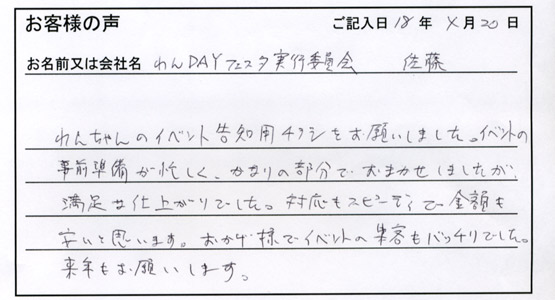 お客様の声 ご記入日 18 年 X 月 20 日
お名前又は会社名 わんDAYフェスタ実行委員会 佐藤
わんちゃんのイベント告知用チラシをお願いしました。イベントの
事前準備が忙しく、かなりの部分でおまかせしましたが、
満足な仕上がりでした。対応もスピーディで金額も
安いと思います。おかげ様でイベントの集客もバッチリでした。
来年もお願いします。